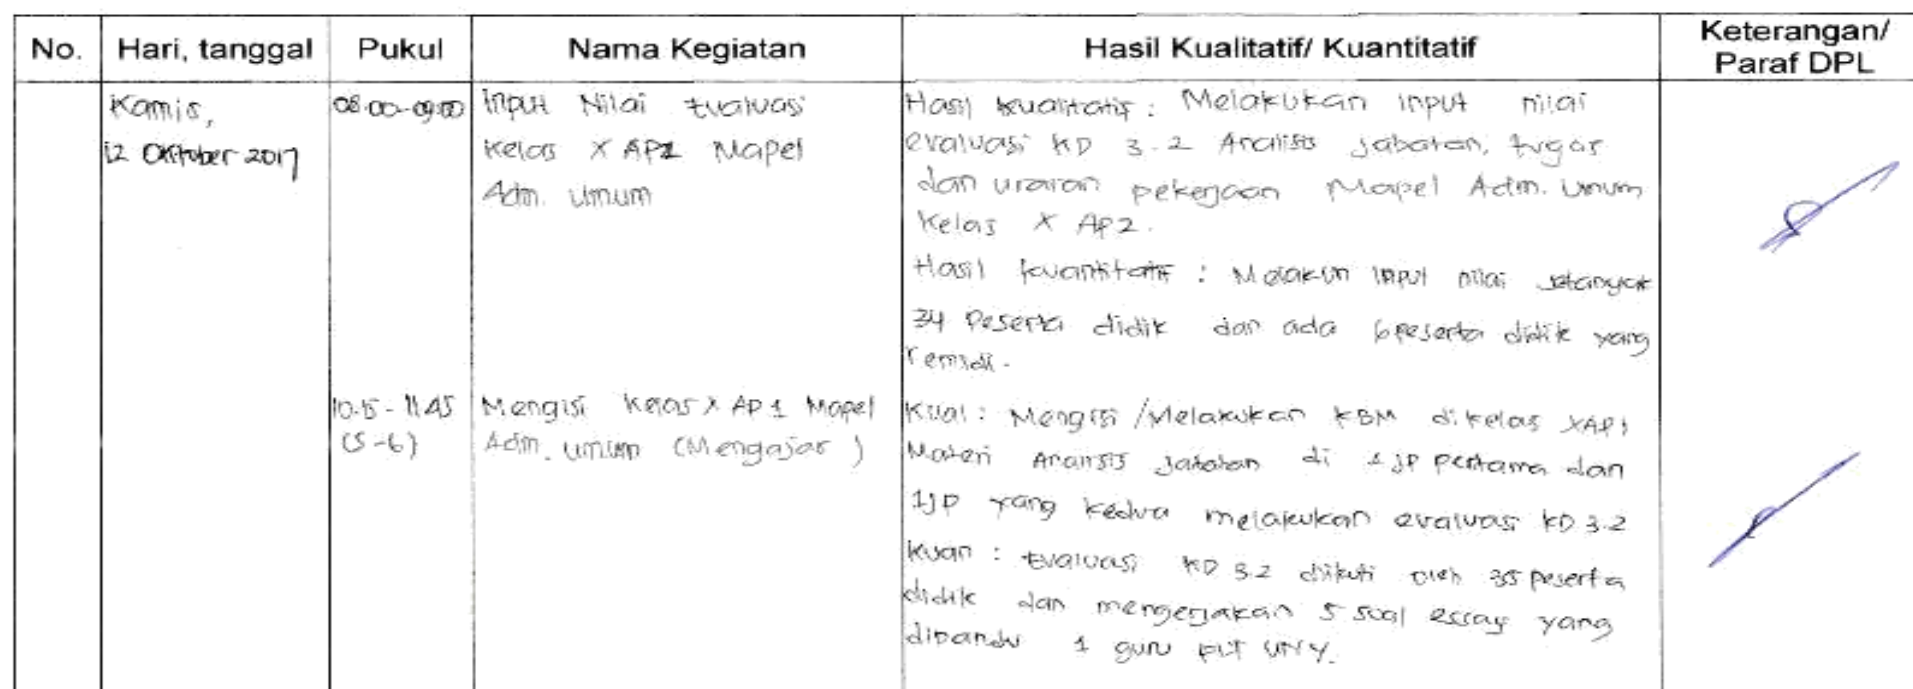 No. Hari, tanggal Pukul Nama Kegiatan Hasil Kualitatif/ Kuantitatif Keterangan/
Paraf DPL
Kamis,
12 Oktober 2017
08.00-09.00
Input Nilai Evaluasi
Kelas X AP2 Mapel
Adm. Umum
Hasil kualitatif : Melakukan input nilai
evaluasi KD 3.2 Analisis jabatan, tugas
dan uraian pekerjaan Mapel Adm. Umum
Kelas X AP2.
Hasil kuantitatif : Melakukn input nilai sebanyak
34 Peserta didik dan ada 6 peserta didik yang
remidi.
10.15 - 11.45
(5-6)
Mengisi Kelas X AP 1 Mapel
Adm. Umum (Mengajar)
Kual : Mengisi /Melakukan KBM di kelas XAP1
Materi Analisis Jabatan di 1 jp pertama dan
1jp yang kedua melakukan evaluasi KD 3.2
Kuan : Evaluasi KD 3.2 diikuti oleh 35 peserta
didik dan mengerjakan 5 soal essay yang
dipandu 1 guru PLT UNY.